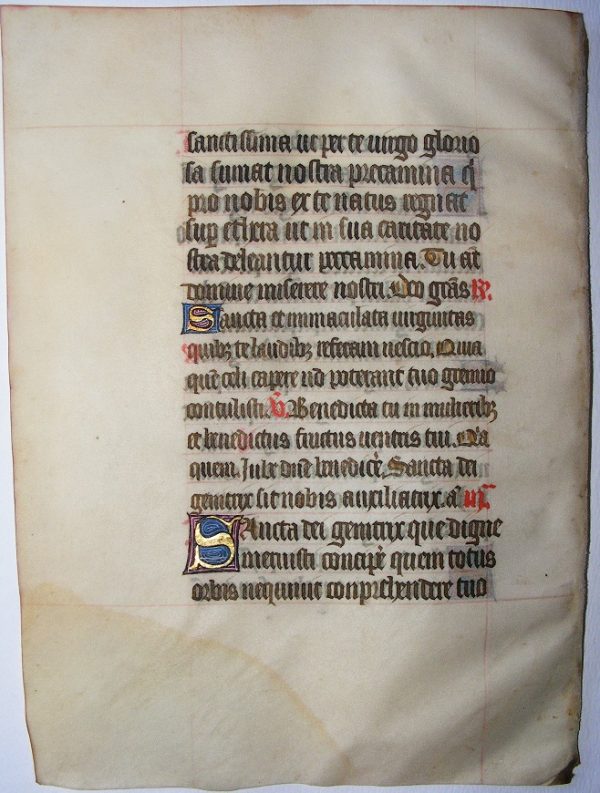 sanctissima ut per te virgo glorio
sa sumat nostra precamina q̇
pro nobis ex te natus regnat
sup̲ ethera ut in sua caritate no
stra deleantur peccamina. Tu aūt
domine miserere nostri. Deo grās R̸.
Sancta et immaculata virginitas
quibꝫ te laudibꝫ referam nescio. Quia
quē celi capere nō poterant tuo gremio
contulisti. V̸. Benedicta tu in mulieribꝫ
et benedictus fructus ventris tui. Q̄a
quem. Jube dn̄e bn̄dicē. Sancta dei
genitrix sit nobis auxiliatrix. a
Sancta dei genitrix que digne
meruisti concipē quem totus
orbis nequivit conprehendere tuo